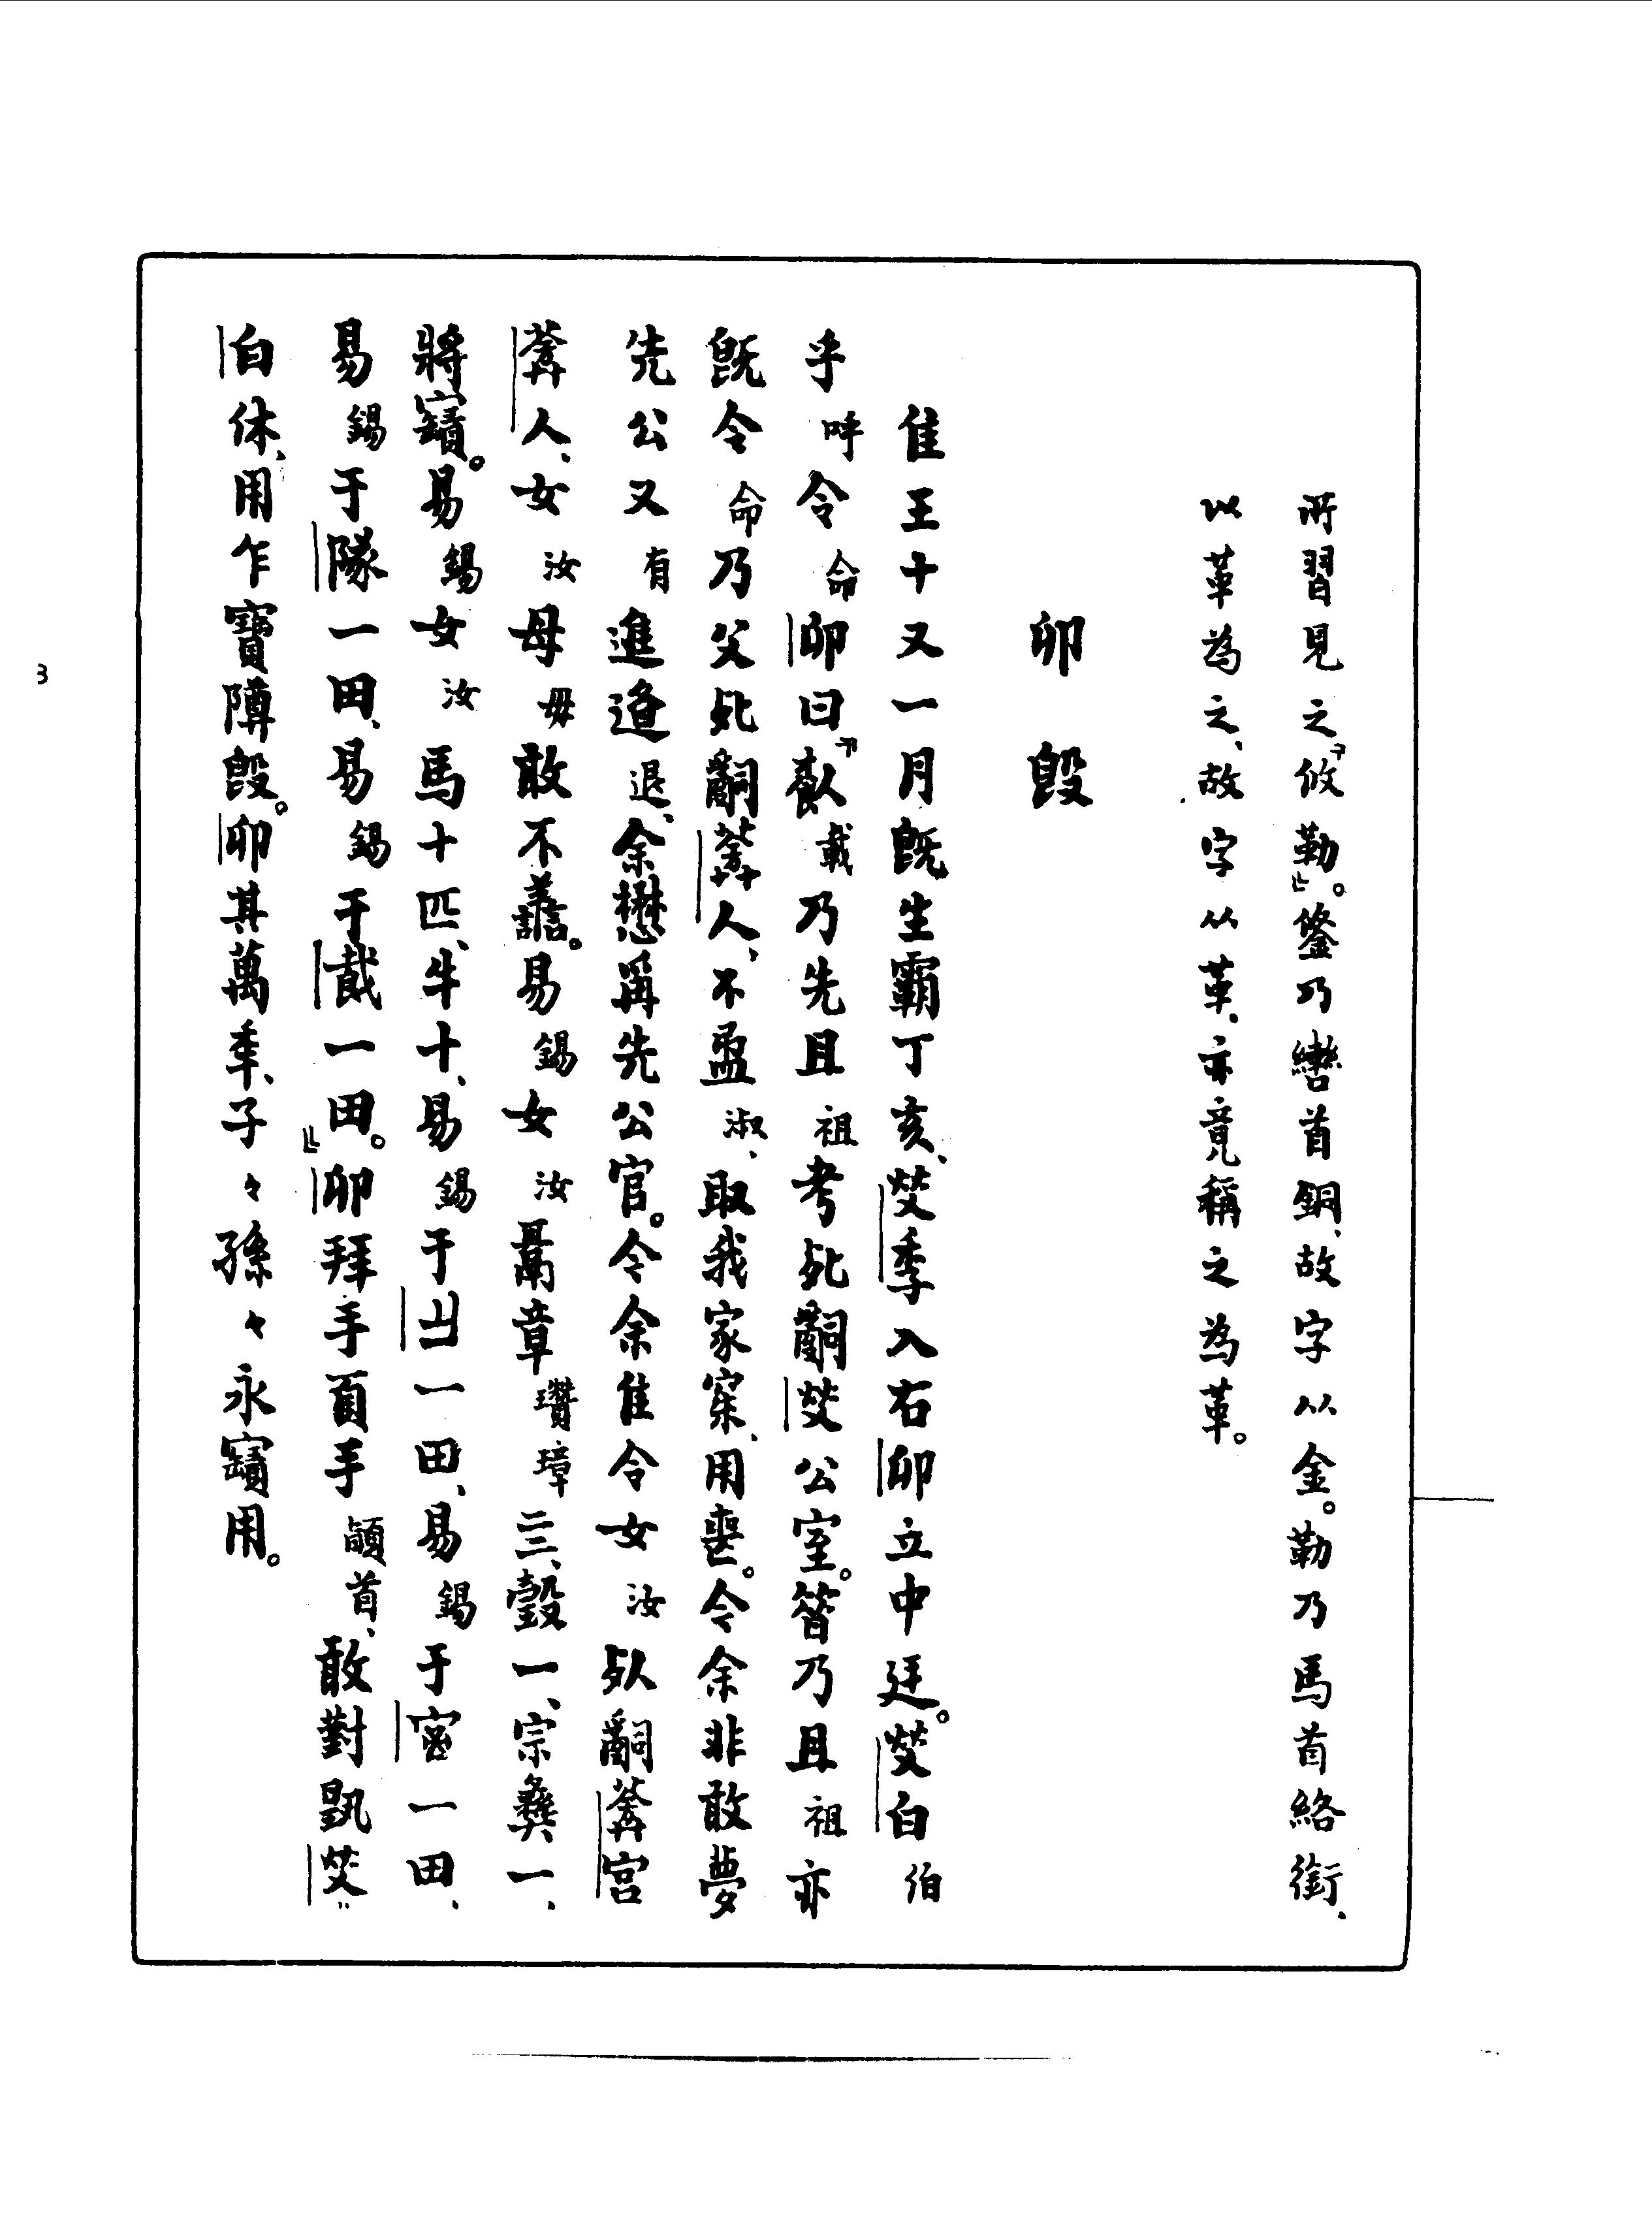 所習見之「攸勒」。鋚乃轡首銅、故字从金。勒乃馬首絡銜、
以革為之、故字从革、亦竟稱之為革。
卯𣪘
隹王十又一月既生霸丁亥、焂季入右卯立中廷。焂白伯
乎呼令命卯曰『乃先且祖考死𤔲焂公室。昝乃且祖亦
既令命乃父死𤔲葊人、不盄淑、取我家窠、用喪。令余非敢夢
先公又有進退、余懋爯先公官。令余隹令女汝死𤔲葊宮
葊人、女汝母毋敢不善。易錫女汝章瓚璋三、瑴一、宗彝一、
將寶。易錫女汝馬十匹、牛十、易錫于一田、易錫于一田、
易錫于隊一田、易錫于𢦚一田。』卯拜手𩒨手䭫首、敢對焂
白休、用乍寶𨻰𣪘。卯其萬年、子〻孫〻永寶用。